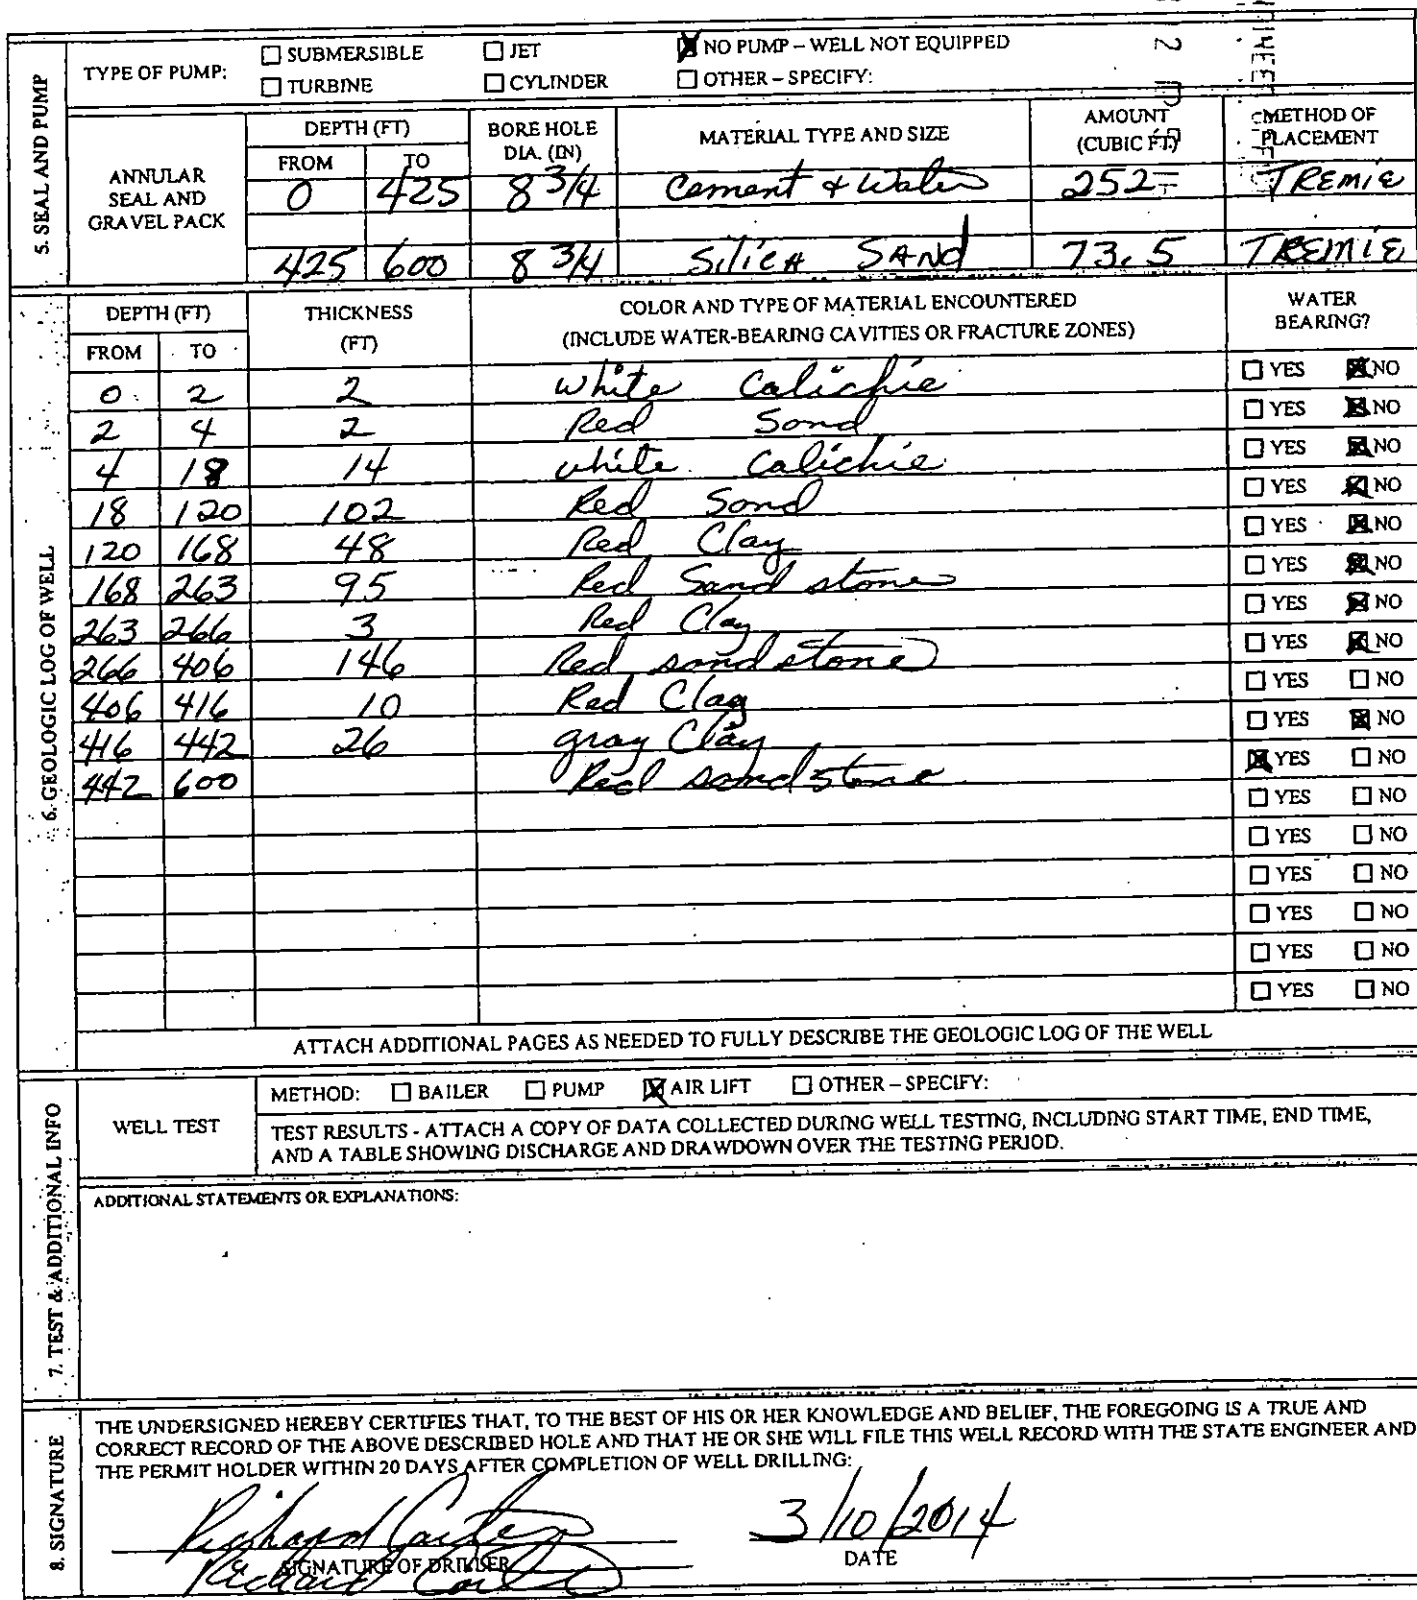 5. SEAL AND PUMP
TYPE OF PUMP: ☐ SUBMERSIBLE ☐ JET ☒ NO PUMP – WELL NOT EQUIPPED
☐ TURBINE ☐ CYLINDER ☐ OTHER – SPECIFY:
ANNULAR SEAL AND GRAVEL PACK
DEPTH (FT) BORE HOLE DIA. (IN) MATERIAL TYPE AND SIZE AMOUNT (CUBIC FT) METHOD OF PLACEMENT
FROM TO
0 425 8 3/4 Cement + Water 252 TREMIE
425 600 8 3/4 SiliCA SAND 73.5 TREMIE
6. GEOLOGIC LOG OF WELL
DEPTH (FT) THICKNESS (FT) COLOR AND TYPE OF MATERIAL ENCOUNTERED WATER BEARING?
FROM TO (INCLUDE WATER-BEARING CAVITIES OR FRACTURE ZONES)
0 2 2 white Calichie ☐ YES ☒ NO
2 4 2 Red Sand ☐ YES ☒ NO
4 18 14 white Calichie ☐ YES ☒ NO
18 120 102 Red Sand ☐ YES ☒ NO
120 168 48 Red Clay ☐ YES ☒ NO
168 263 95 Red Sand stone ☐ YES ☒ NO
263 266 3 Red Clay ☐ YES ☒ NO
266 406 146 Red sand stone ☐ YES ☒ NO
406 416 10 Red Clay ☐ YES ☐ NO
416 442 26 gray Clay ☐ YES ☒ NO
442 600 Red sand stone ☒ YES ☐ NO
☐ YES ☐ NO
☐ YES ☐ NO
☐ YES ☐ NO
☐ YES ☐ NO
☐ YES ☐ NO
☐ YES ☐ NO
ATTACH ADDITIONAL PAGES AS NEEDED TO FULLY DESCRIBE THE GEOLOGIC LOG OF THE WELL
7. TEST & ADDITIONAL INFO
WELL TEST
METHOD: ☐ BAILER ☐ PUMP ☒ AIR LIFT ☐ OTHER – SPECIFY:
TEST RESULTS - ATTACH A COPY OF DATA COLLECTED DURING WELL TESTING, INCLUDING START TIME, END TIME,
AND A TABLE SHOWING DISCHARGE AND DRAWDOWN OVER THE TESTING PERIOD.
ADDITIONAL STATEMENTS OR EXPLANATIONS:
8. SIGNATURE
THE UNDERSIGNED HEREBY CERTIFIES THAT, TO THE BEST OF HIS OR HER KNOWLEDGE AND BELIEF, THE FOREGOING IS A TRUE AND
CORRECT RECORD OF THE ABOVE DESCRIBED HOLE AND THAT HE OR SHE WILL FILE THIS WELL RECORD WITH THE STATE ENGINEER AND
THE PERMIT HOLDER WITHIN 20 DAYS AFTER COMPLETION OF WELL DRILLING:
Richard 3/10/2014
SIGNATURE OF DRILLER DATE
Richard